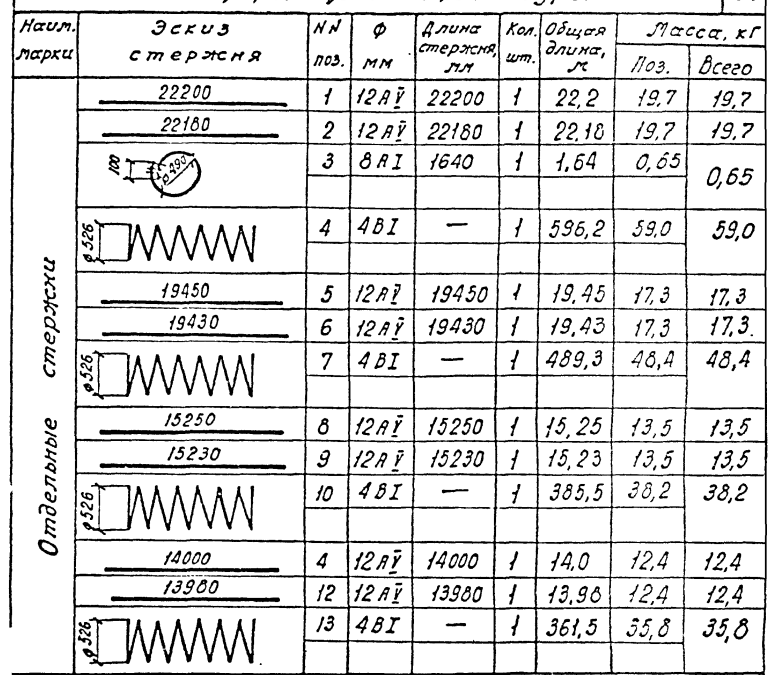 Наим. марки | Эскиз стержня | NN поз. | Ф мм | Длина стержня, мм | Кол. шт. | Общая длина, м | Масса, кг Поз. | Всего
Отдельные стержни
22200 | 1 | 12АV | 22200 | 1 | 22,2 | 19.7 | 19,7
22180 | 2 | 12АV | 22180 | 1 | 22,18 | 19,7 | 19,7
100 ф490 | 3 | 8АI | 1640 | 1 | 1,64 | 0,65 | 0,65
ф526 | 4 | 4ВI | — | 1 | 596,2 | 59.0 | 59,0
19450 | 5 | 12АV | 19450 | 1 | 19,45 | 17,3 | 17,3
19430 | 6 | 12АV | 19430 | 1 | 19,43 | 17,3 | 17,3.
ф526 | 7 | 4ВI | — | 1 | 489,3 | 48,4 | 48,4
15250 | 8 | 12АV | 15250 | 1 | 15,25 | 13,5 | 13,5
15230 | 9 | 12АV | 15230 | 1 | 15,23 | 13,5 | 13,5
ф526 | 10 | 4ВI | — | 1 | 385,5 | 38,2 | 38,2
14000 | 4 | 12АV | 14000 | 1 | 14,0 | 12,4 | 12,4
13980 | 12 | 12АV | 13980 | 1 | 13,98 | 12,4 | 12,4
ф526 | 13 | 4ВI | — | 1 | 361,5 | 35,8 | 35,8